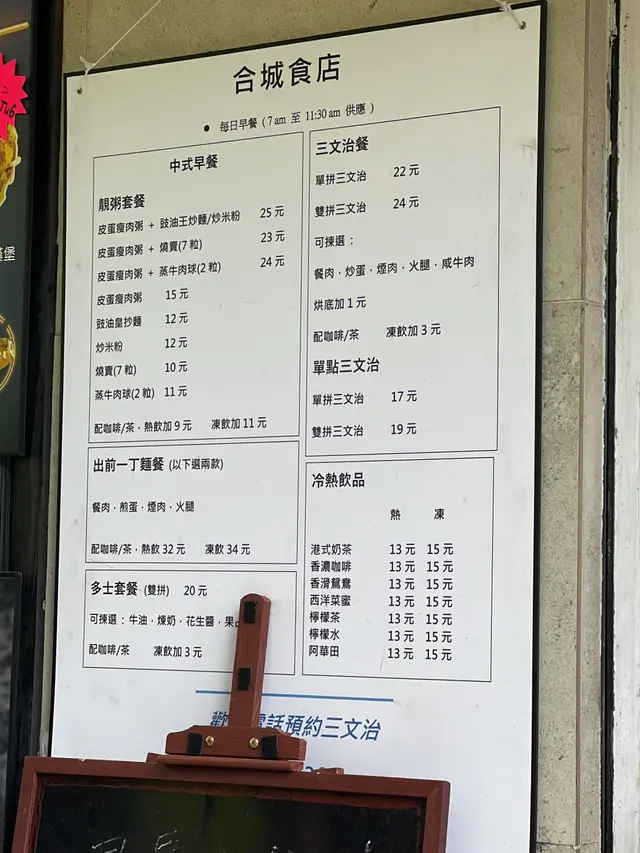 合城食店
● 每日早餐 ( 7 am 至 11:30 am 供應 )
中式早餐
靚粥套餐
皮蛋瘦肉粥 + 豉油王炒麵/炒米粉 25 元
皮蛋瘦肉粥 + 燒賣(7 粒) 23 元
皮蛋瘦肉粥 + 蒸牛肉球(2 粒) 24 元
皮蛋瘦肉粥 15 元
豉油皇抄麵 12 元
炒米粉 12 元
燒賣(7 粒) 10 元
蒸牛肉球(2 粒) 11 元
配咖啡/茶，熱飲加 9 元 凍飲加 11 元
出前一丁麵餐 (以下選兩款)
餐肉，煎蛋，煙肉，火腿
配咖啡/茶，熱飲 32 元 凍飲 34 元
多士套餐 (雙拼) 20 元
可揀選：牛油，煉奶，花生醬，果
配咖啡/茶 凍飲加 3 元
三文治餐
單拼三文治 22 元
雙拼三文治 24 元
可揀選：
餐肉，炒蛋，煙肉，火腿，咸牛肉
烘底加 1 元
配咖啡/茶 凍飲加 3 元
單點三文治
單拼三文治 17 元
雙拼三文治 19 元
冷熱飲品
熱 凍
港式奶茶 13 元 15 元
香濃咖啡 13 元 15 元
香滑鴛鴦 13 元 15 元
西洋菜蜜 13 元 15 元
檸檬茶 13 元 15 元
檸檬水 13 元 15 元
阿華田 13 元 15 元
歡 電話預約三文治
堡